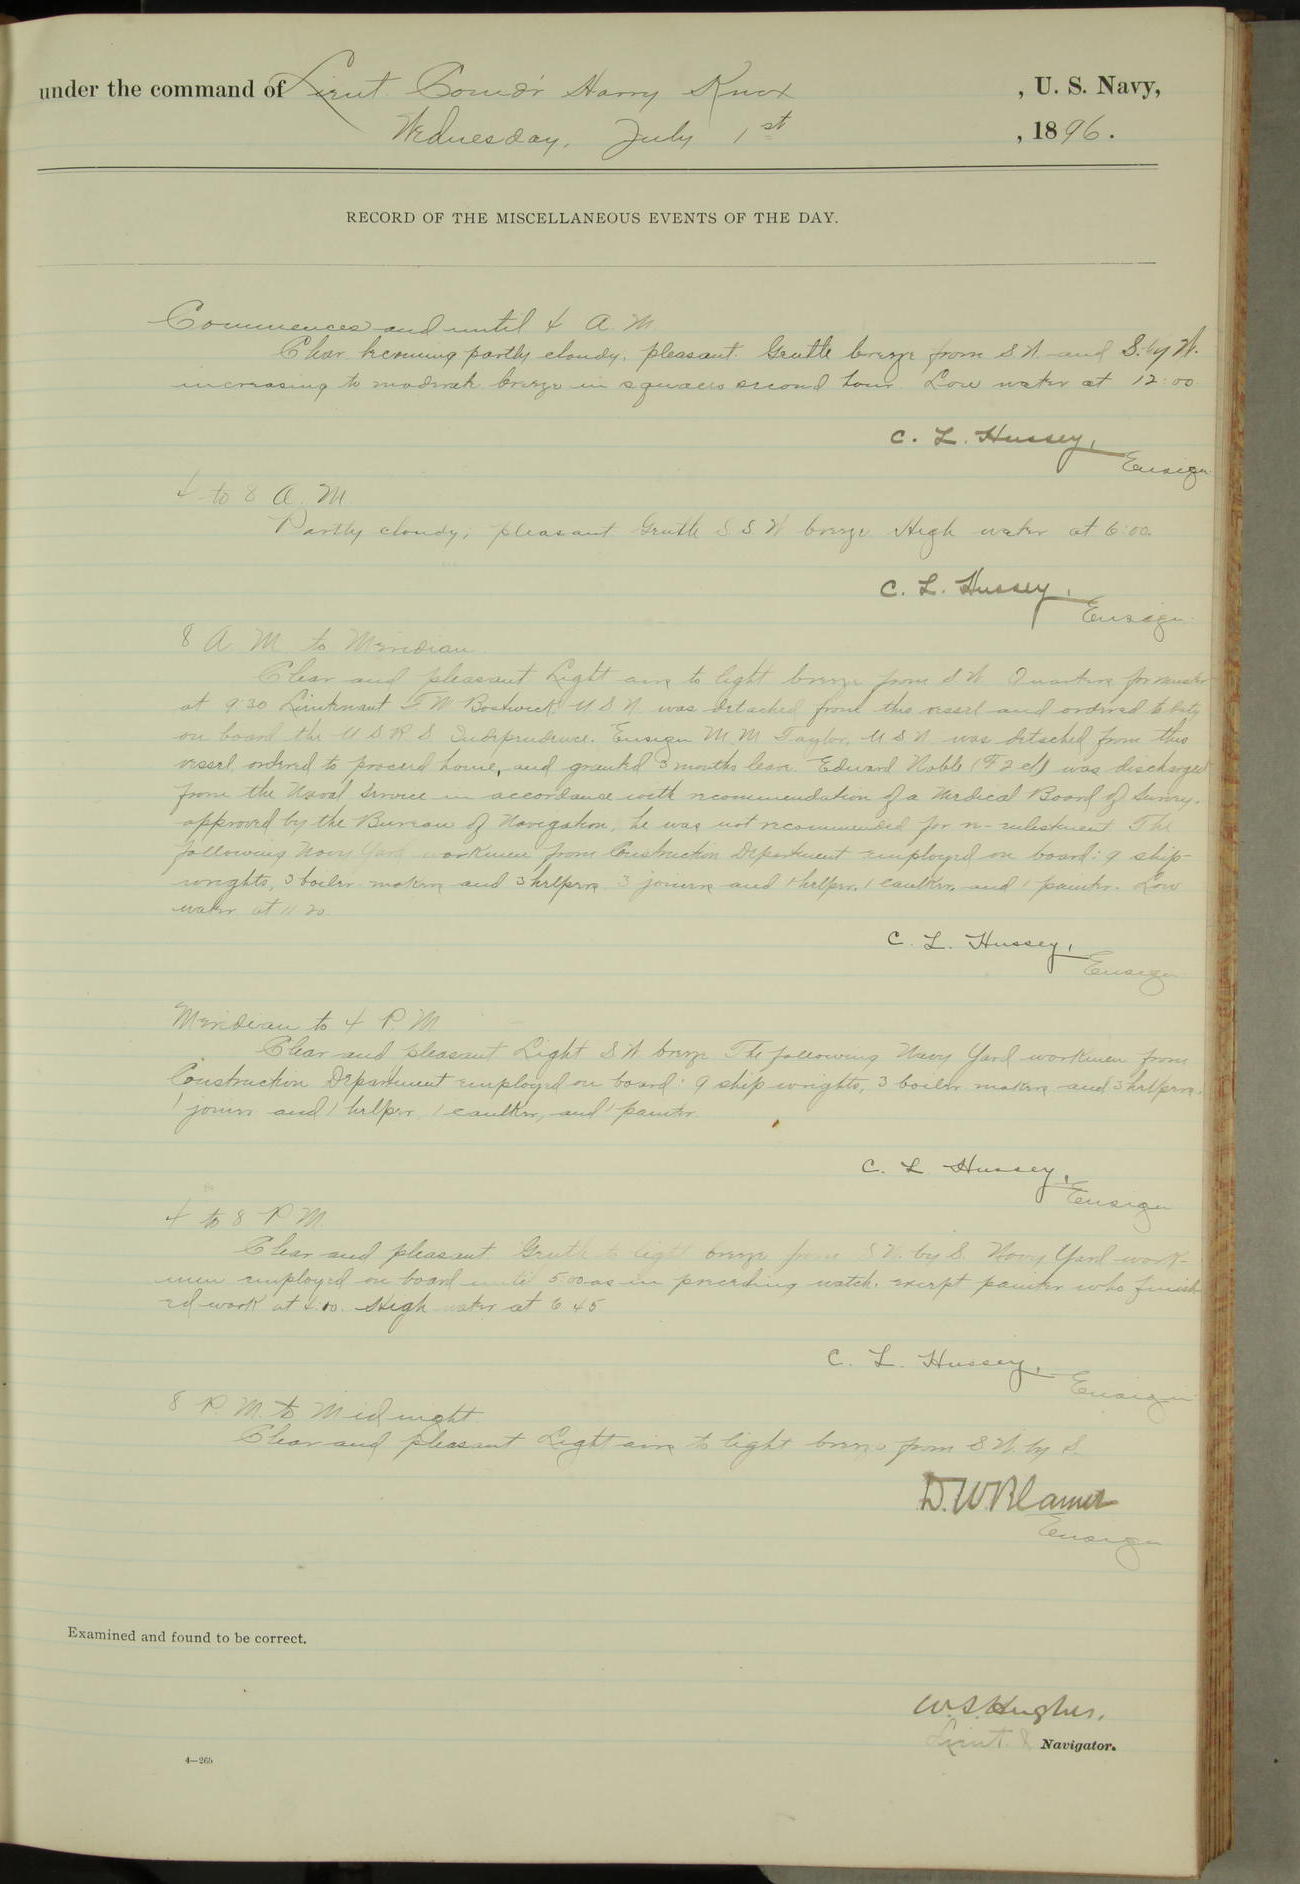 under the command of Lieut Comd'r Harry Knox , U. S. Navy,
Wednesday, July 1st , 1896.
RECORD OF THE MISCELLANEOUS EVENTS OF THE DAY.
Commences and until 4 A. M.
Clear becoming partly cloudy, pleasant. Gentle breeze from S.W. and S. by W.
increasing to moderate breeze in squalls second hour. Low water at 12:00
C. L. Hussey,
Ensign
4 to 8 A. M.
Partly cloudy; pleasant Gentle S S W breeze. High water at 6:00.
C. L. Hussey,
Ensign.
8 A. M. to Meridian.
Clear and pleasant Light airs to light breeze from S W. Quarters for muster
at 9:30 Lieutenant F. M. Bostwick U. S. N. was detached from this vessel and ordered to duty
on board the U S R S. Independence. Ensign M. M. Taylor, U S N. was detached from this
vessel, ordered to proceed home, and granted 3 months leave. Edward Noble (F 2 cl) was discharged
from the Naval Service in accordance with recommendation of a Medical Board of Survey,
approved by the Bureau of Navigation, he was not recommended for re-enlistment. The
following Navy Yard workmen from Construction Department employed on board: 9 ship-
wrights, 3 boiler makers and 3 helpers, 3 joiners and 1 helper, 1 caulker, and 1 painter. Low
water at 11 20.
C. L. Hussey,
Ensign
Meridian to 4 P. M.
Clear and pleasant Light S W breeze The following Navy Yard workmen from
Construction Department employed on board: 9 ship wrights, 3 boiler makers and 3 helpers,
1 joiner and 1 helper, 1 caulker, and 1 painter.
C. L. Hussey,
Ensign
4 to 8 P M.
Clear and pleasant Gentle to light breeze from S W. by S. Navy Yard work-
men employed on board until 5:00 as in preceding watch, except painter who finish-
ed work at 4:10. High water at 6 45
C. L. Hussey,
Ensign
8 P. M. to Midnight.
Clear and pleasant Light airs to light breeze from S W. by S.
D. W. Blamer
Ensign
Examined and found to be correct.
W. S. Hughes,
Lieut. & Navigator.
4—265